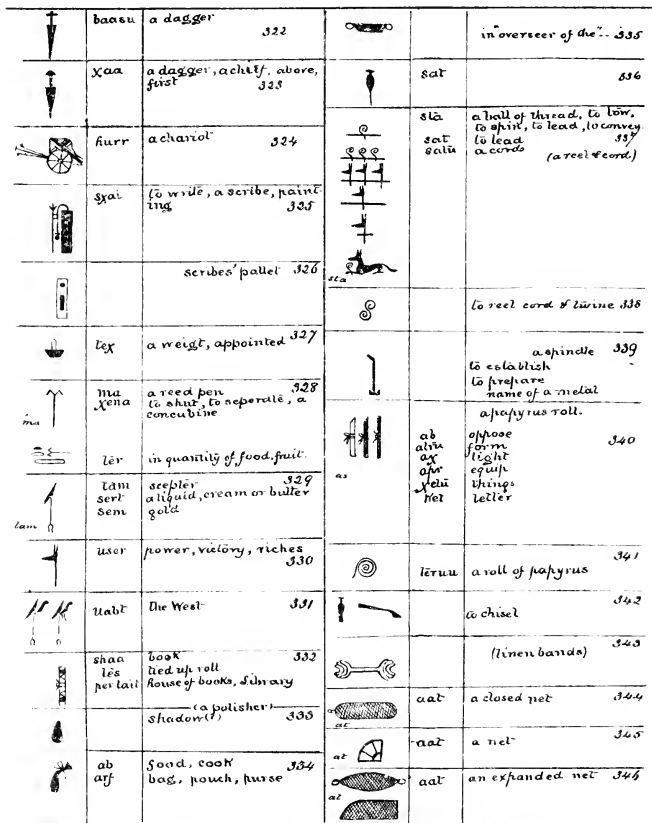 baasu a dagger 322
χaa a dagger, a chief. above,
first 323
hurr a chariot 324
sχai to write, a scribe, paint
ing 325
scribes' pallet 326
teχ a weigt, appointed 327
ma a reed pen 328
χena to shut, to seperate, a
ma concubine
tēr in quantity of food, fruit.
tam scepter 329
sert a liquid, cream or butter
sem gold
tam
user power, victory, riches
330
uabt the West 331
shaa book 332
tēs tied up roll
per tait house of books, Library
(a polisher)
shadow(?) 333
ab food, cook 334
arf bag, pouch, purse
in overseer of the "-- 335
sat 336
sta a ball of thread, to tow,
to spin, to lead, to convey
sat to lead 337
satu a cords
(a reel & cord)
sta
to reel cord & twine 338
a spindle 339
to establish
to prepare
name of a metal
a papyrus roll.
ab oppose
atru form 340
aχ light
apr equip
χetu things
het letter
as
tēruu a roll of papyrus 341
342
to chisel
343
(linen bands)
aat a closed net 344
at
aat a net 345
at
aat an expanded net 346
at